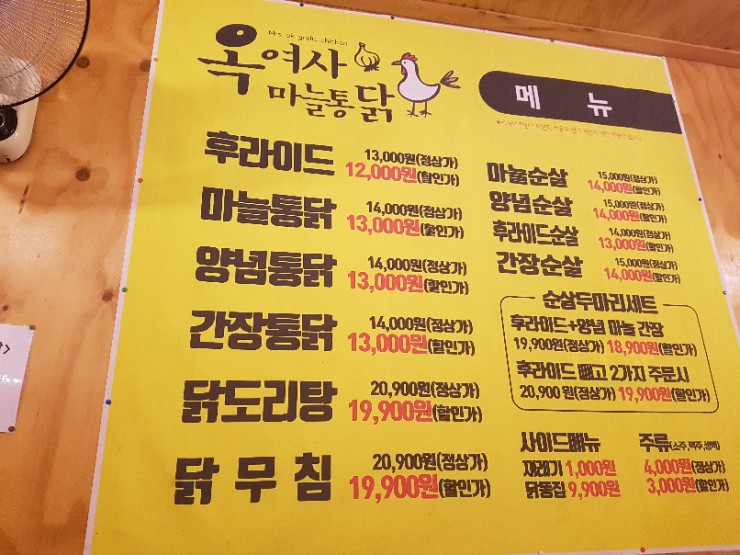 Mrs.ok garlic chicken
옥여사
마늘통닭
메 뉴
후라이드 13,000원(정상가)
12,000원(할인가)
마늘통닭 14,000원(정상가)
13,000원(할인가)
양념통닭 14,000원(정상가)
13,000원(할인가)
간장통닭 14,000원(정상가)
13,000원(할인가)
닭도리탕 20,900원(정상가)
19,900원(할인가)
닭 무 침 20,900원(정상가)
19,900원(할인가)
마늘순살 15,000원(정상가)
14,000원(할인가)
양념순살 15,000원(정상가)
14,000원(할인가)
후라이드순살 14,000원(정상가)
13,000원(할인가)
간장순살 15,000원(정상가)
14,000원(할인가)
순살두마리세트
후라이드+양념 마늘 간장
19,900원(정상가) 18,900원(할인가)
후라이드 빼고 2가지 주문시
20,900 원(정상가) 19,900원(할인가)
사이드메뉴
재래기 1,000원
닭똥집 9,900원
주류(소주,맥주,생맥)
4,000원(정상가)
3,000원(할인가)